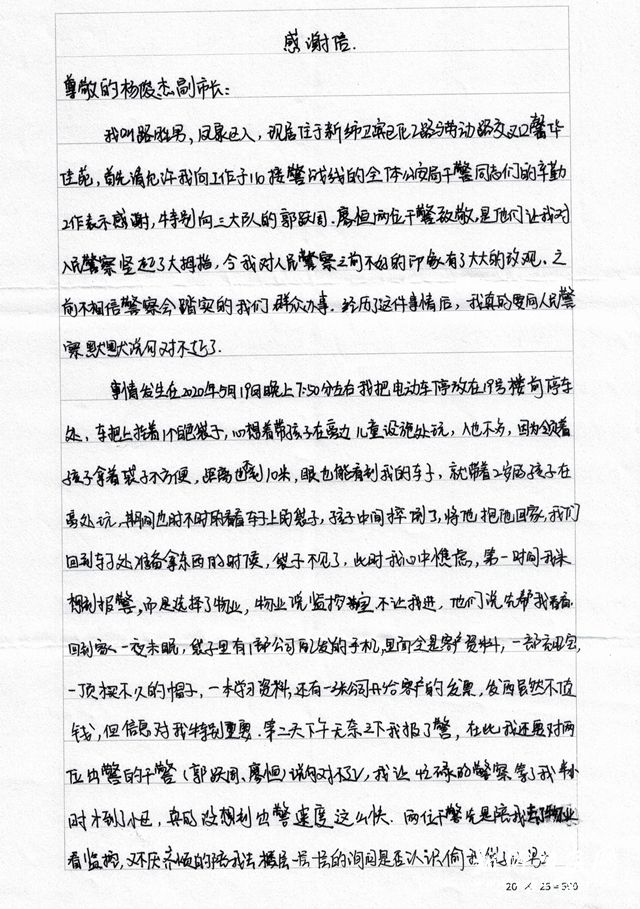 感谢信.
尊敬的杨俊杰副市长:
我叫路胜男,凤泉区人,现居住于新乡卫滨区化工路与劳动路交叉口馨华
佳苑,首先请允许我向工作于110接警战线的全体公安局干警同志们的辛勤
工作表示感谢,特别向三大队的郭跃周、廖恒两位干警致敬,是他们让我对
人民警察竖起了大拇指,令我对人民警察之前不好的印象有了大大的改观.之
前不相信警察会踏实的我们群众办事.经历了这件事情后,我真的要向人民警
察默默说句对不起了.
事情发生在2020年5月19日晚上7:50分左右我把电动车停放在19号楼前停车
处,车把上挂着1个袋子,心想着带孩子在旁边儿童设施处玩,人也不多,因为领着
孩子拿着袋子不方便,距离也到10米,眼也能看到我的车子,就带着2岁的孩子在
旁处玩,期间也时不时的看看车子上的袋子,孩子中间摔倒了,将他抱他回家,我们
回到车子处准备拿东西的时候,袋子不见了,此时我心中焦虑,第一时间我未
想到报警,而是选择了物业,物业说监控室不让我进,他们说先帮我看看
回到家一夜未眠,袋子里有1部公司配发的手机,里面全是客户资料,一部充电宝,
一顶买不久的帽子,一本学习资料,还有一张公司开给客户的发票,东西虽然不值
钱,但信息对我特别重要.第二天下午无奈之下我报了警,在此我还要对两
位出警的干警(郭跃周、廖恒)说句对不起,我让忙碌的警察等了我半小
时才到小区,真的没想到出警速度这么快.两位干警先是陪我去了物业
看监控,又不厌其烦的陪我去楼层一层一层的询问是否认识偷我袋子的男
20 × 25 = 500